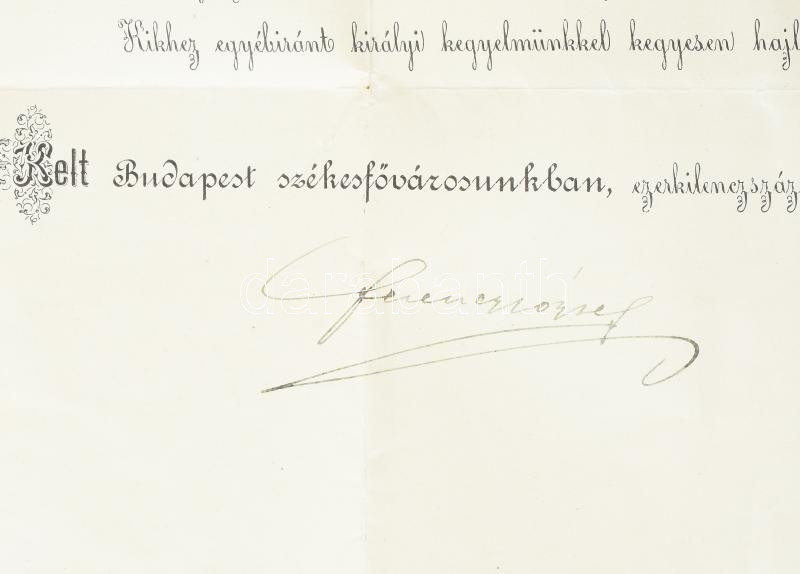 Kikhez egyébiránt királyi kegyelmünkkel kegyesen hajl
Kelt Budapest székesfővárosunkban, ezerkilenczszáz
Ferencz József
darabanth